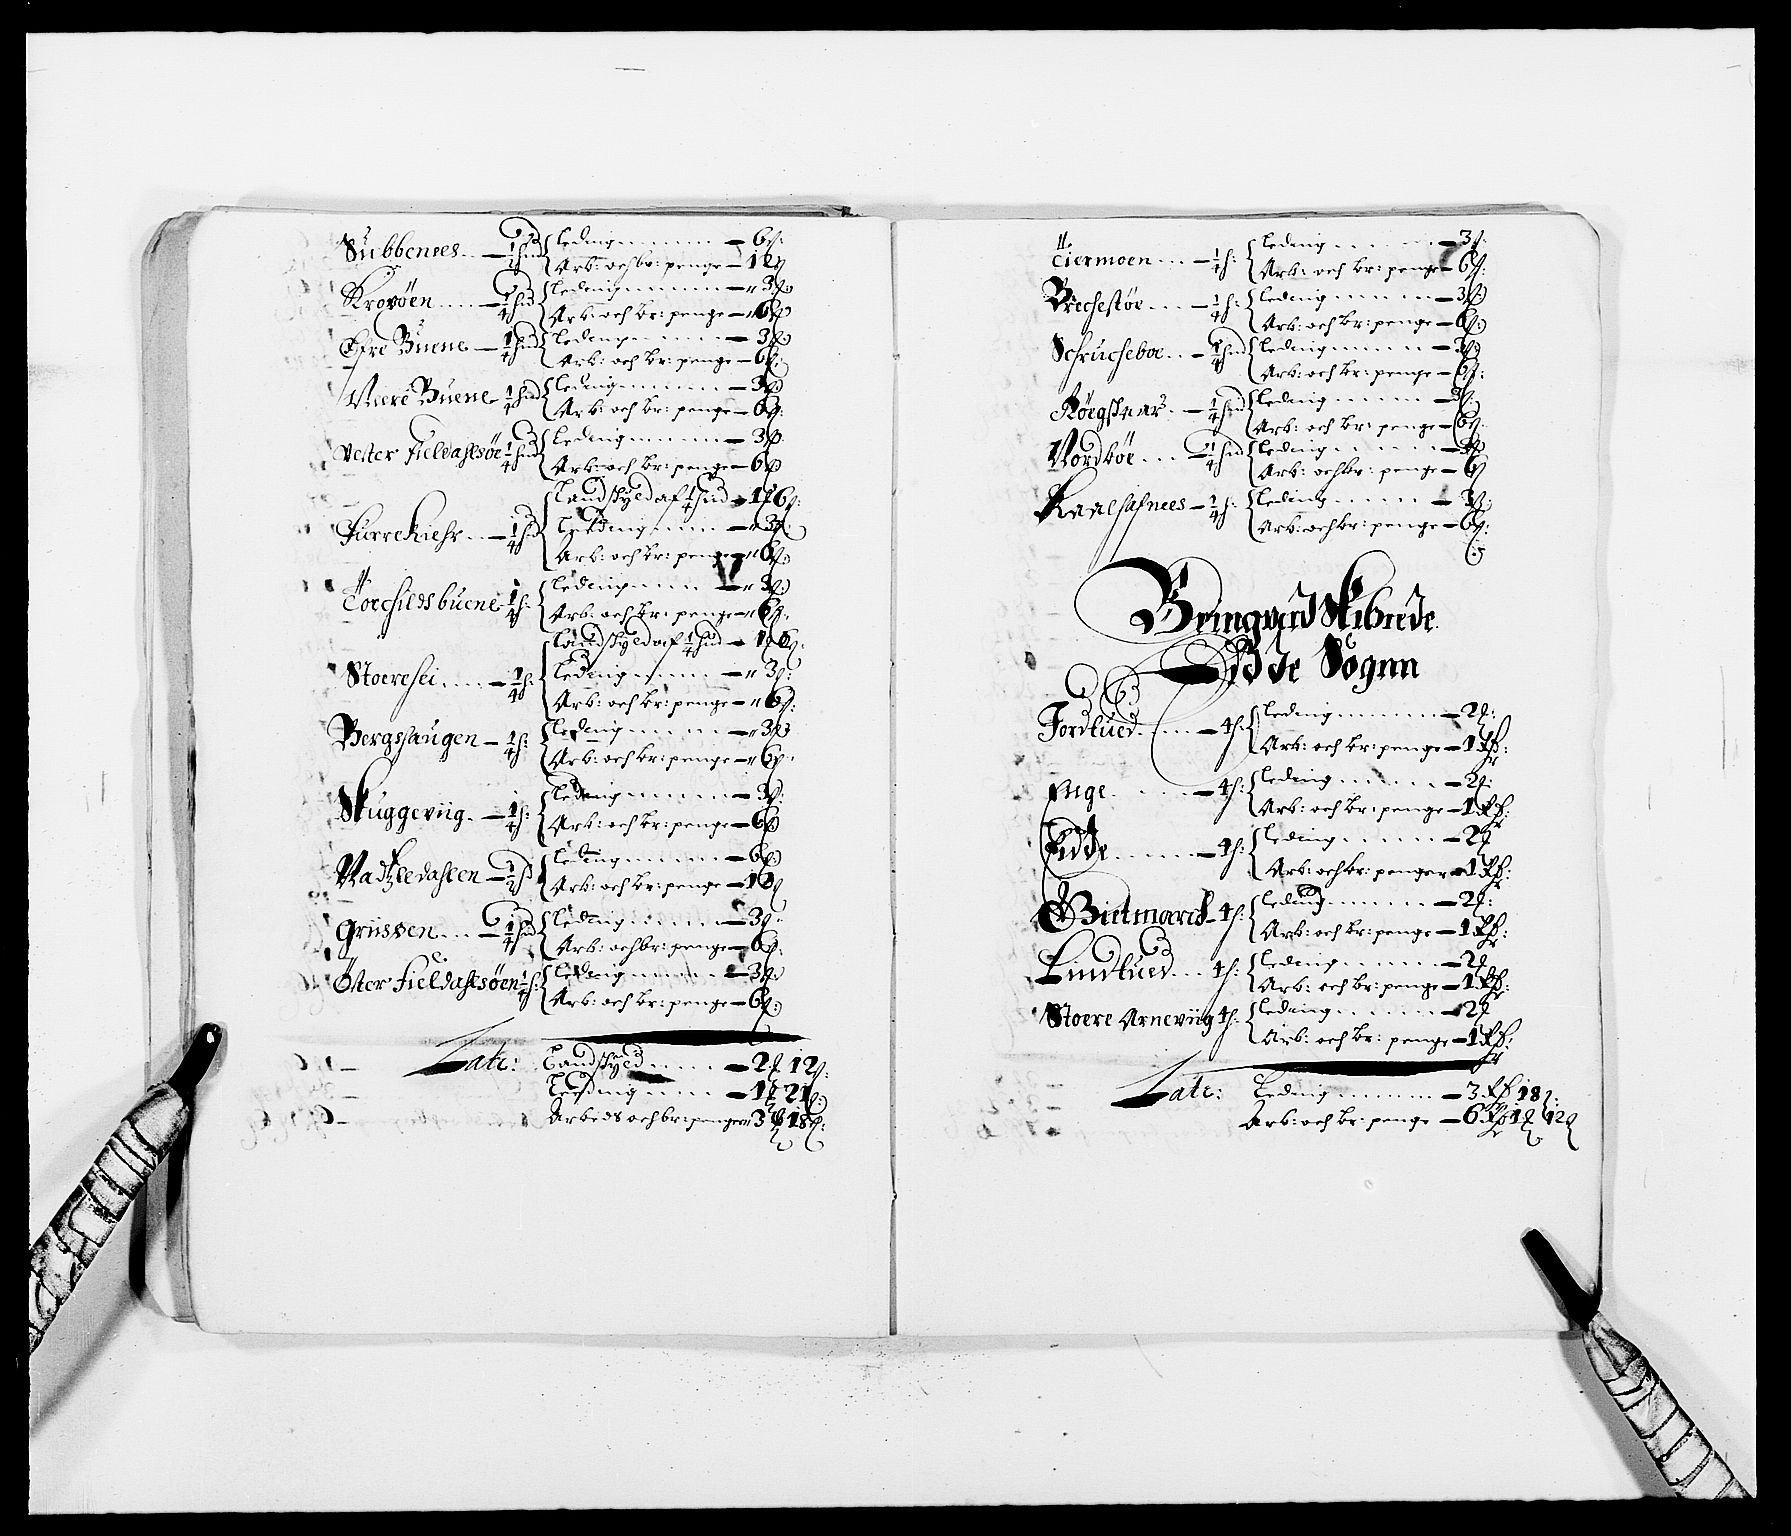 Stubbenees.. — ½ hud { Leding — 6 ß:
Arb: och br: penge — 12 ß
Krogöen — ¼ hud { Leding — 3 ß
Arb: och br: penge — 6 ß
Øfre Buene — ¼ hud { Leding — 3 ß
Arb: och br: penge — 6 ß:
Nicre Buene — ¼ hud { Leding — 3 ß
Arb: och br: penge — 6 ß:
Vester Fieldahlsöe — ¼ hud { Leding — 3 ß
Arb: och br: penge — 6 ß
Landskyld af ¼ hud — 1 ƶ 6 ß:
Furrekiehr — ¼ hud { Leding — 3 ß:
Arb: och br: penge — 6 ß
Torchildsbuene — ¼ h: { Leding — 3 ß
Arb: och br: penge — 6 ß:
Landskyld af ¼ hud — 1 ƶ 6 ß:
Stoeresei — ¼ h: { Leding — 3 ß:
Arb: och br: penge — 6 ß:
Bergshaugen — ¼ h: { Leding — 3 ß
Arb: och br: penge — 6 ß
Skuggeviig — ¼ h: { Leding — 3 ß:
Arb: och br: penge — 6 ß
Vadtzledahlen — ½ h { Leding — 6 ß
Arb: och br: penge — 12 ß
Griissen — ¼ hud { Leding — 3 ß:
Arb: och br: penge — 6 ß:
Öster Fieldahlsöen ¼ h: { Leding — 3 ß
Arb: och br: penge — 6 ß:
Late: Landskyld — 2 ƶ 12 ß:
Leding — 1 ƶ 21 ß:
Arbeds och br: penger 3 ƶ 18 ß:
Tiermoen — ¼ h: { Leding — 3 ß:
Arb: och br: penge — 6 ß:
Brechestöe — ¼ h: { Leding — 3 ß
Arb: och br: penge — 6 ß:
Schrucheboe — ¼ hud { Leding — 3 ß
Arb: och br: penge — 6 ß:
Röegshaar — ¼ hud { Leding — 3 ß:
Arb: och br: penge — 6 ß:
Nordböe — ¼ hud { Leding — 3 ß
Arb: och br: penge — 6 ß
Kaalhafnees — ¼ h: { Leding — 3 ß:
Arb: och br: penge — 6 ß:
Bringverd Skibrede
Eidde Sognn
Fordtued — 4 h: { Leding — 2 ƶ:
Arb: och br: penge — 1 Rdr:
Enge — 4 h: { Leding — 2 ƶ:
Arb: och br: penge — 1 Rdr:
Eidde — 4 h: { Leding — 2 ƶ
Arb: och br: penger — 1 Rdr:
Bietmarch — 4 h: { Leding — 2 ƶ:
Arb: och br: penge — 1 Rdr:
Lindtued — 4 h: { Leding — 2 ƶ
Arb: och br: penge — 1 Rdr:
Stoere Arneviig 4 h: { Leding — 2 ƶ
Arb: och br: penge — 1 Rdr:
Late: Leding — 3 Rdr 18 ß:
Arb: och br: penge — 6 Rdr 1 ƶ 12 ß